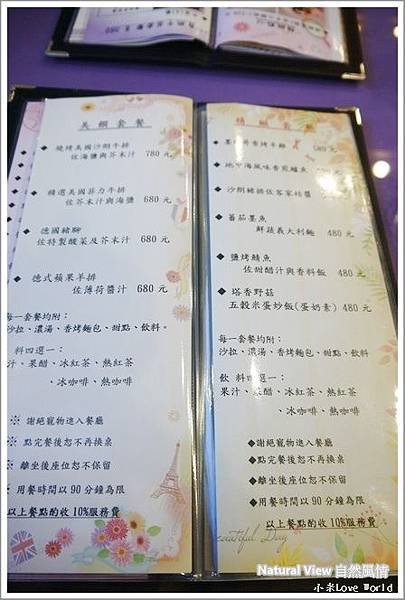 美饌套餐
燒烤美國沙朗牛排
佐海鹽與芥末汁 780 元
精選美國菲力牛排
佐芥末汁與海鹽 680 元
德國豬腳
佐特製酸菜及芥末汁 680 元
德式蘋果羊排
佐薄荷醬汁 680 元
每一套餐均附：
沙拉、濃湯、香烤麵包、甜點、飲料。
料四選一：
汁、果醋、冰紅茶、熱紅茶
、冰咖啡、熱咖啡。
※ 謝絕寵物進入餐廳
※ 點完餐後恕不再換桌
※ 離坐後座位恕不保留
※ 用餐時間以 90 分鐘為限
以上餐點酌收 10%服務費
套
◆ 地中海風味香煎鱸魚
◆ 沙朗豬排佐客家桔醬
◆ 蕃茄墨魚
鮮蔬義大利麵 480 元
◆ 鹽烤鯖魚
佐甜醋汁與香料飯 480 元
◆ 塔香野菇
五穀米蛋炒飯(蛋奶素) 480 元
每一套餐均附：
沙拉、濃湯、香烤麵包、甜點、飲料
飲 料四選一：
果汁、果醋、冰紅茶、熱紅茶
、冰咖啡、熱咖啡。
◆謝絕寵物進入餐廳
◆點完餐後恕不再換桌
◆離坐後座位恕不保留
◆用餐時間以 90 分鐘為限
以上餐點酌收 10%服務費
Beautiful Day
Natural View 自然風情
小米Love World